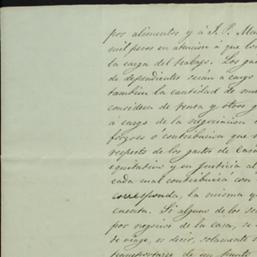 por alimentos y á J. P. Ma
mil pesos en atencion á que los
la carga del trabajo. Los gas
de dependientes serán á cargo
tambien la cantidad de
considere de renta y otros g
á cargo de la negociacion
forzoso ó contribucion que
respecto de los gastos de Casa
equitativo y en justicia al
cada cual contribuirá con
corresponda, la misma y
cuenta. Si alguno de los so
por negocios de la casa, se
de viage, es decir, solamente
transportarse de un punto